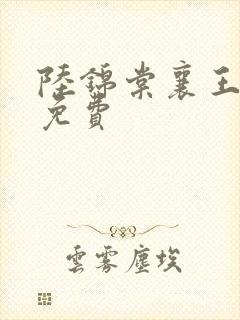 陸錦棠襄王
免費
雲霧塵埃